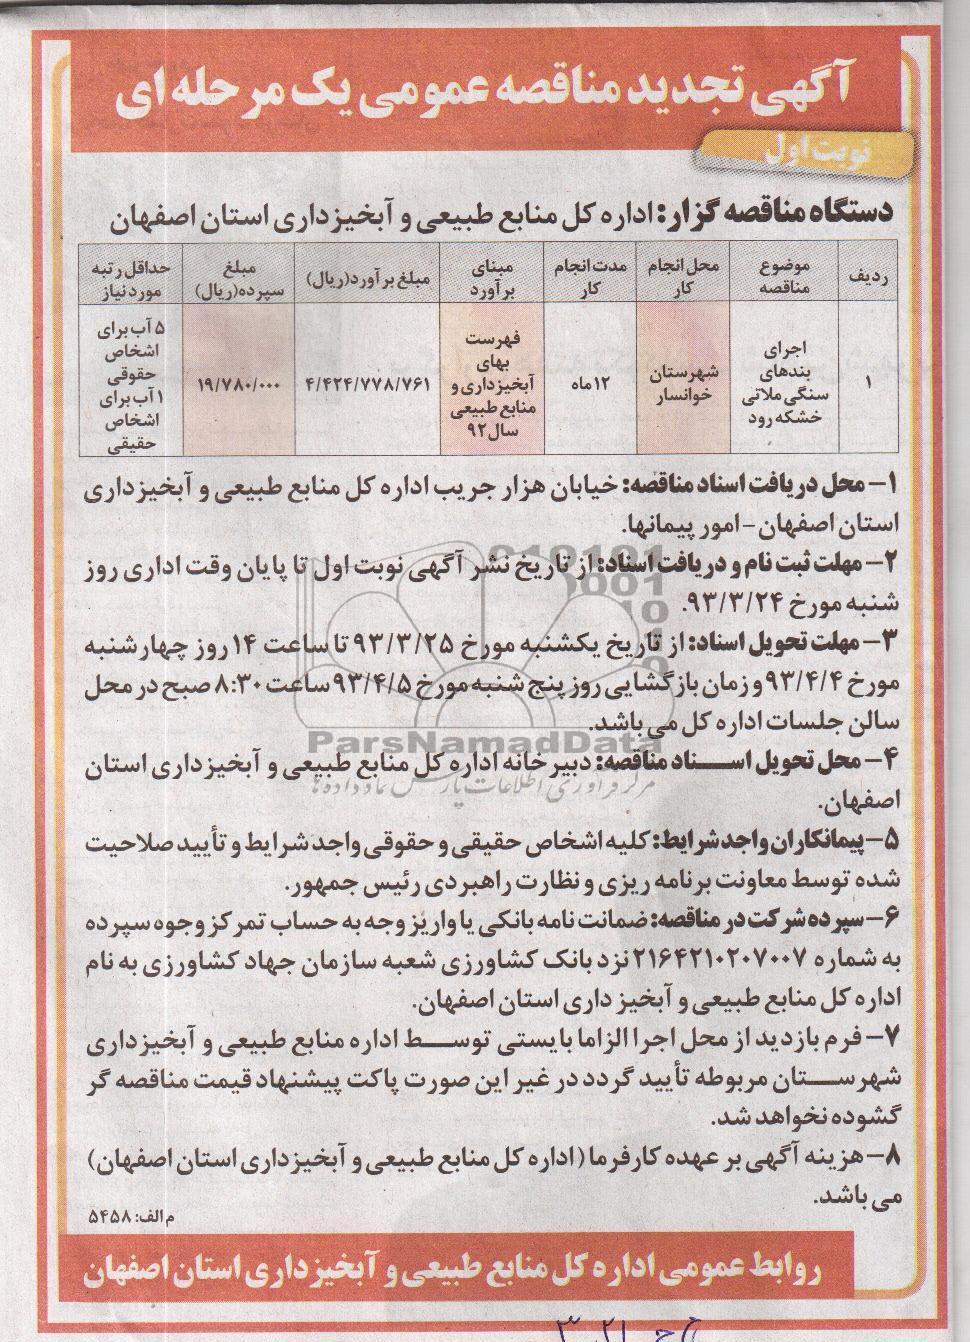 آگهی تجدید مناقصه عمومی یک مرحله ای
نوبت اول
دستگاه مناقصه گزار: اداره کل منابع طبیعی و آبخیزداری استان اصفهان
ردیف
موضوع مناقصه
محل انجام کار
مدت انجام کار
مبنای برآورد
مبلغ برآورد(ریال)
مبلغ سپرده(ریال)
حداقل رتبه مورد نیاز
۱
اجرای بندهای سنگی ملاتی خشکه رود
شهرستان خوانسار
۱۲ماه
فهرست بهای آبخیزداری و منابع طبیعی سال۹۲
۴/۴۲۴/۷۷۸/۷۶۱
۱۹/۷۸۰/۰۰۰
۵ آب برای اشخاص حقوقی ۱ آب برای اشخاص حقیقی
۱- محل دریافت اسناد مناقصه: خیابان هزار جریب اداره کل منابع طبیعی و آبخیزداری
استان اصفهان- امور پیمانها.
۲- مهلت ثبت نام و دریافت اسناد: از تاریخ نشر آگهی نوبت اول تا پایان وقت اداری روز
شنبه مورخ ۹۳/۳/۲۴.
۳- مهلت تحویل اسناد: از تاریخ یکشنبه مورخ ۹۳/۳/۲۵ تا ساعت ۱۴ روز چهارشنبه
مورخ ۹۳/۴/۴ و زمان بازگشایی روز پنج شنبه مورخ ۹۳/۴/۵ ساعت ۸:۳۰ صبح در محل
سالن جلسات اداره کل می باشد.
ParsNamadData
۴- محل تحویل اسناد مناقصه: دبیرخانه اداره کل منابع طبیعی و آبخیزداری استان
مرکز فرآوری اطلاعات پارس نماد داده ها
اصفهان.
۵- پیمانکاران واجد شرایط: کلیه اشخاص حقیقی و حقوقی واجد شرایط و تأیید صلاحیت
شده توسط معاونت برنامه ریزی و نظارت راهبردی رئیس جمهور.
۶- سپرده شرکت در مناقصه: ضمانت نامه بانکی یا واریز وجه به حساب تمرکز وجوه سپرده
به شماره ۲۱۶۴۲۱۰۲۰۷۰۰۷ نزد بانک کشاورزی شعبه سازمان جهاد کشاورزی به نام
اداره کل منابع طبیعی و آبخیز داری استان اصفهان.
۷- فرم بازدید از محل اجرا الزاما بایستی توسط اداره منابع طبیعی و آبخیزداری
شهرستان مربوطه تأیید گردد در غیر این صورت پاکت پیشنهاد قیمت مناقصه گر
گشوده نخواهد شد.
۸- هزینه آگهی بر عهده کارفرما (اداره کل منابع طبیعی و آبخیزداری استان اصفهان)
می باشد.
م الف: ۵۴۵۸
روابط عمومی اداره کل منابع طبیعی و آبخیزداری استان اصفهان